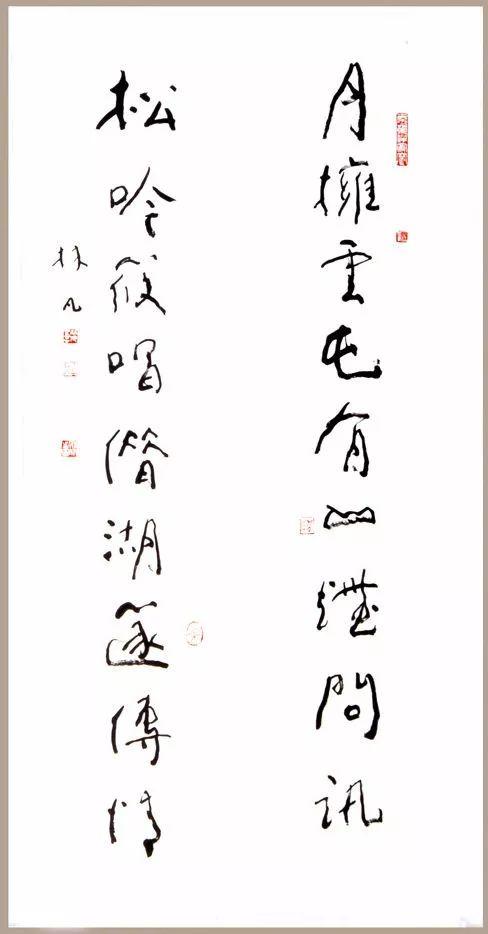 月擁雲屯有山問訊
松吟筱唱湖傳情
林凡